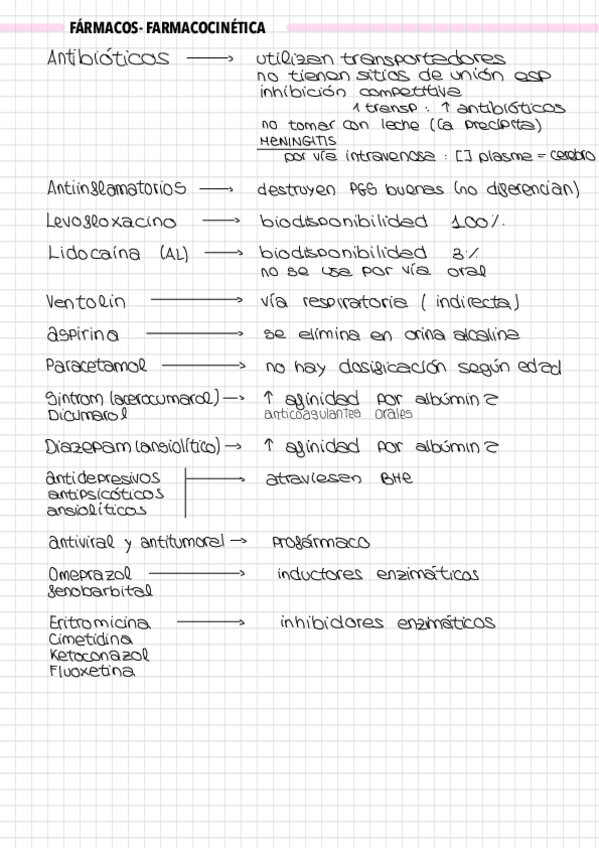 FÁRMACOS- FARMACOCINÉTICA
Antibióticos → utilizan transportadores
no tienen sitios de unión esp
inhibición competitiva
1 transp : ↑ antibióticos
no tomar con leche (Ca precipita)
MENINGITIS
por vía intravenosa : [] plasma = cerebro
Antiinflamatorios → destruyen PGs buenas (no diferencian)
Levofloxacino → biodisponibilidad 100%
Lidocaína (AL) → biodisponibilidad 3%
no se usa por vía oral
Ventolin → vía respiratoria (indirecta)
aspirina → se elimina en orina alcalina
Paracetamol → no hay dosificación según edad
Sintrom (acerocumarol) → ↑ afinidad por albúmina
Dicumarol anticoagulantes orales
Diazepam (ansiolítico) → ↑ afinidad por albúmina
antidepresivos → atraviesan BHE
antipsicóticos
ansiolíticos
antiviral y antitumoral → profármaco
Omeprazol → inductores enzimáticos
fenobarbital
Eritromicina → inhibidores enzimáticos
Cimetidina
Ketoconazol
Fluoxetina